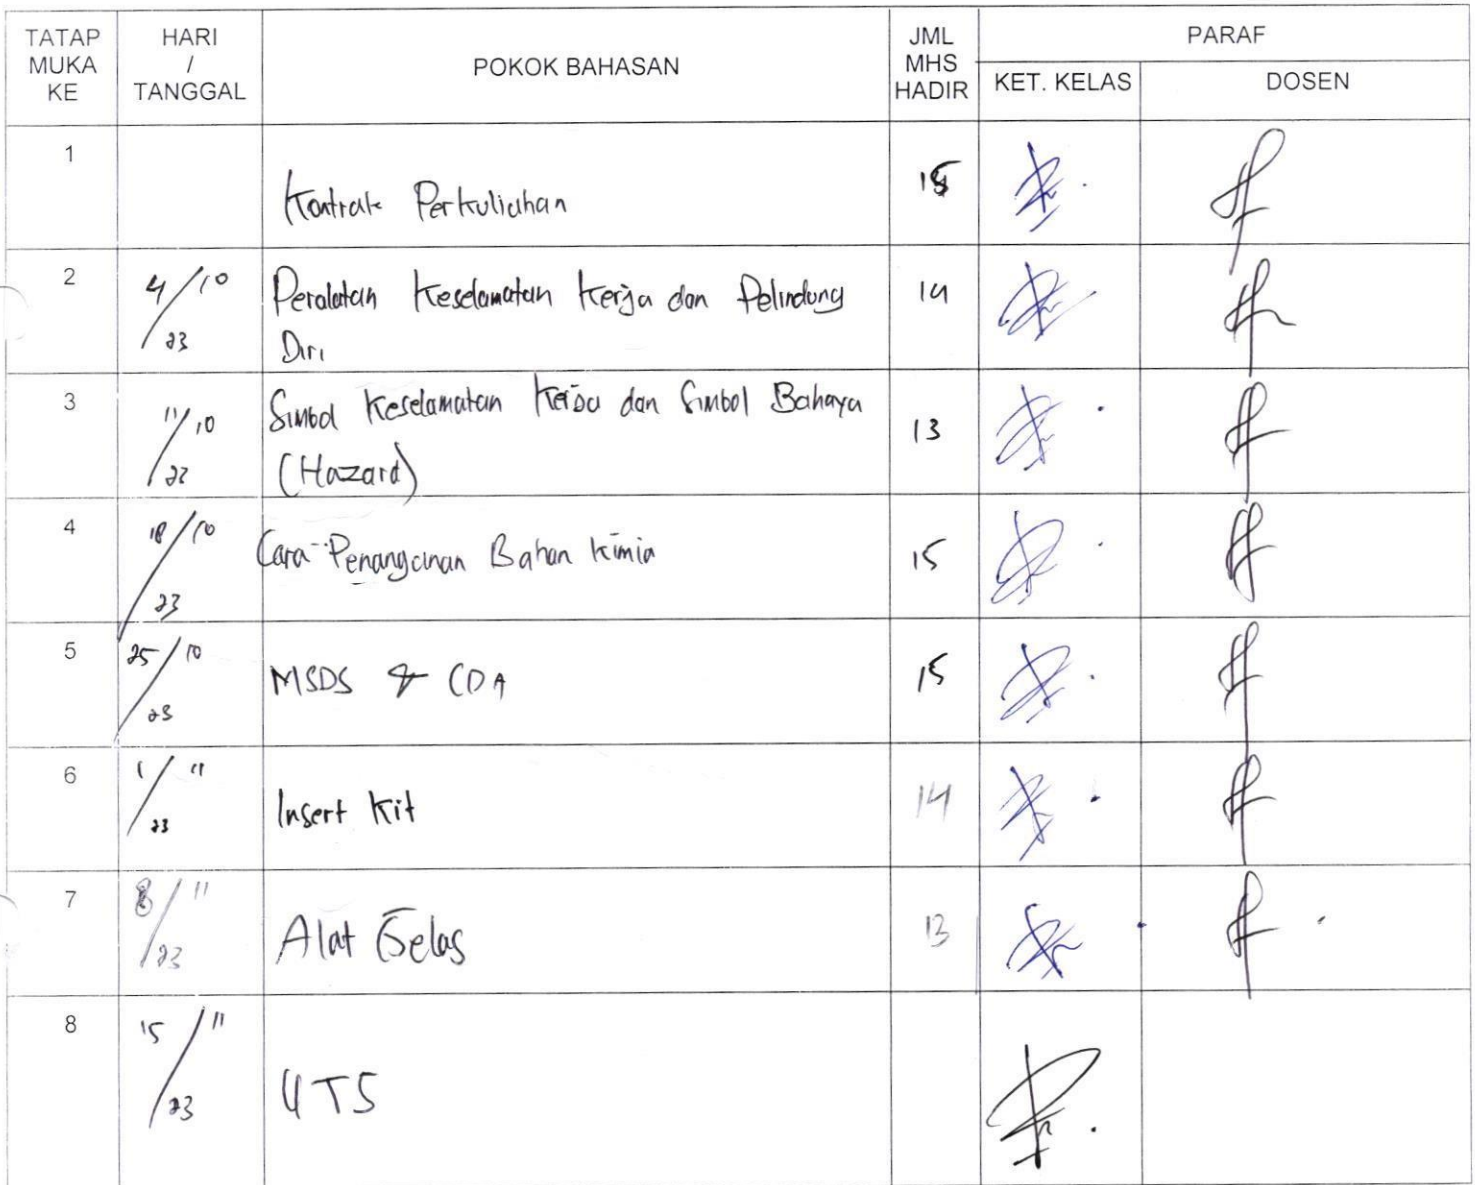 TATAP MUKA KE HARI / TANGGAL POKOK BAHASAN JML MHS HADIR PARAF
KET. KELAS DOSEN
1 Kontrak Perkuliahan 15
2 4/10/23 Peralatan Keselamatan Kerja dan Pelindung
Diri 14
3 11/10/23 Simbol Keselamatan Kerja dan Simbol Bahaya
(Hazard) 13
4 18/10/23 Cara Penanganan Bahan Kimia 15
5 25/10/23 MSDS & COA 15
6 1/11/23 Insert Kit 14
7 8/11/23 Alat Gelas 13
8 15/11/23 UTS